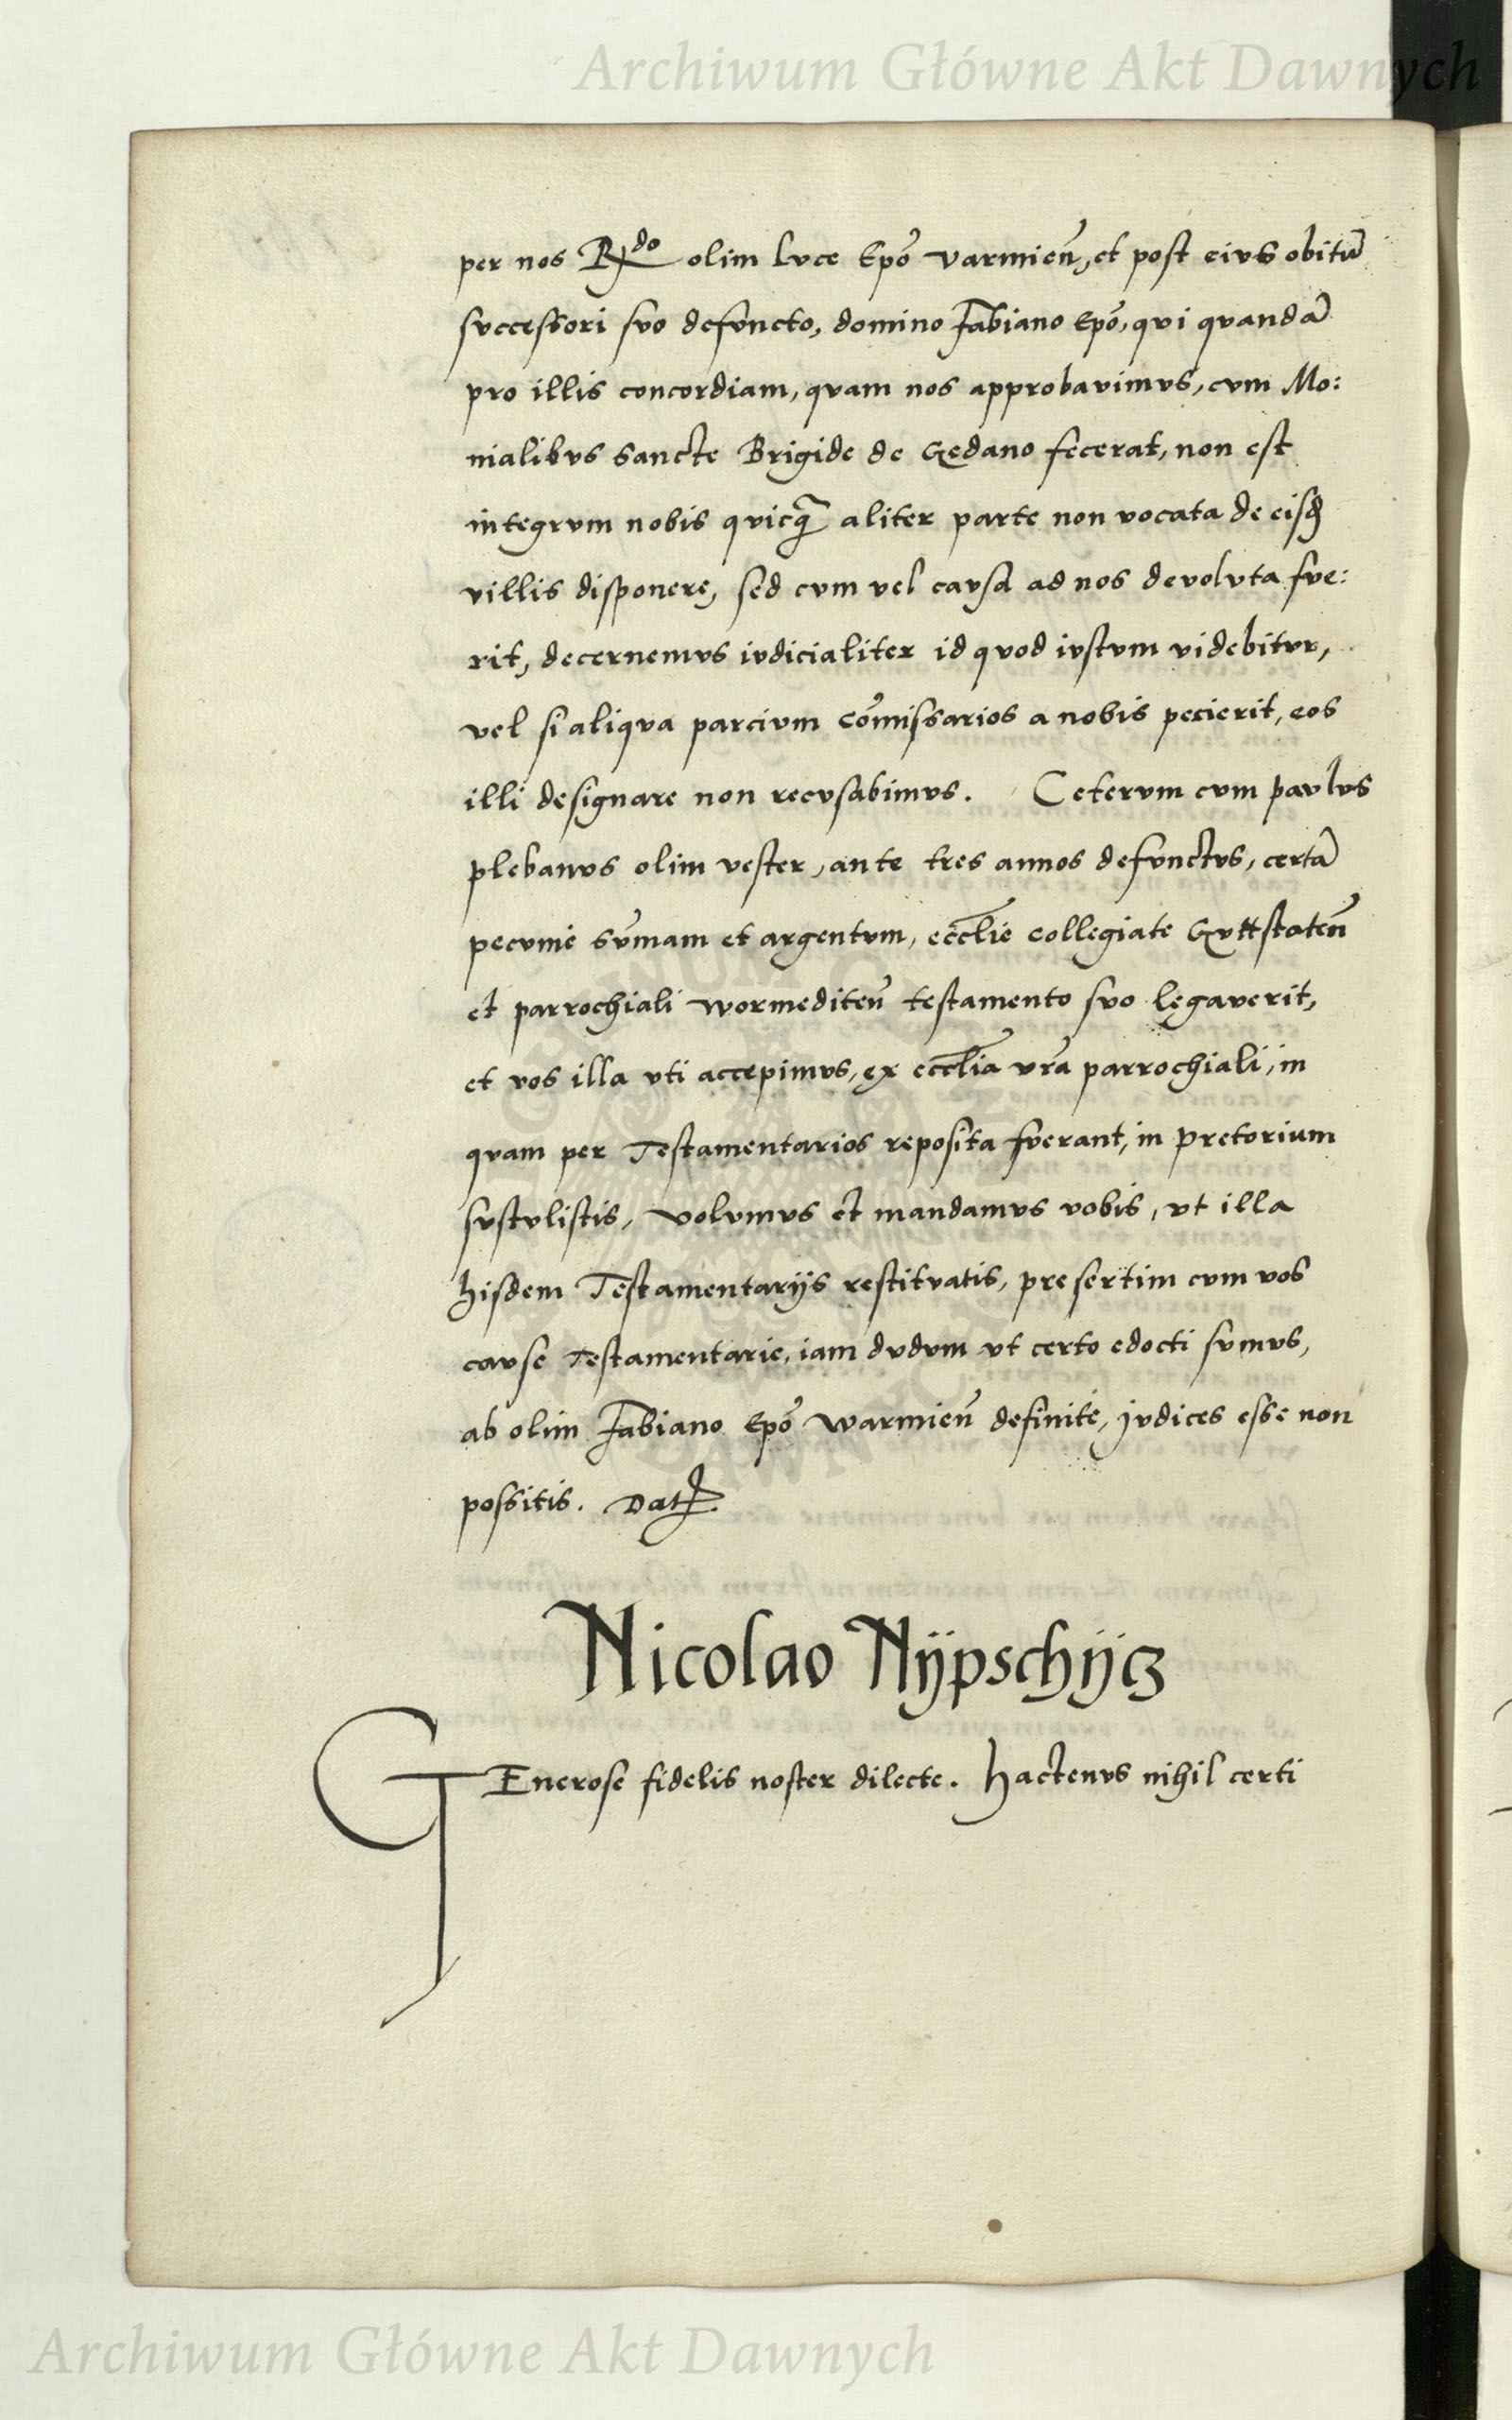 Archiwum Główne Akt Dawnych
per nos R.do olim Luce Epõ varmieñ, et post eius obitũ
successori suo defuncto, domino Fabiano Epõ, qui quandã
pro illis concordiam, quam nos approbauimus, cum Mo:
nialibus sancte Brigide de Gedano fecerat, non est
integrum nobis quicq̃ aliter parte non vocata de eisđ
villis disponere, sed cum vel causa ad nos deuoluta fue:
rit, decernemus iudicialiter id quod iustum videbitur,
vel si aliqua parcium cõmissarios a nobis pecierit, eos
illi designare non recusabimus. Ceterum cum paulus
plebanus olim vester, ante tres annos defunctus, certã
pecunie sũmam et argentum, ecclie collegiate Guttstateñ
et parrochiali wormediteñ testamento suo legauerit,
et vos illa vti accepimus, ex ecclia vrã parrochiali, in
quam per Testamentarios reposita fuerant, in pretorium
sustulistis, volumus et mandamus vobis, vt illa
hisdem Testamentarijs restituatis, presertim cum vos
cause Testamentarie, iam dudum vt certo edocti sumus,
ab olim Fabiano Epõ warmieñ definite, judices esse non
possitis. Dat.
Nicolao Nÿpschÿcz
GEnerose fidelis noster dilecte. Hactenus nihil certi
Archiwum Główne Akt Dawnych